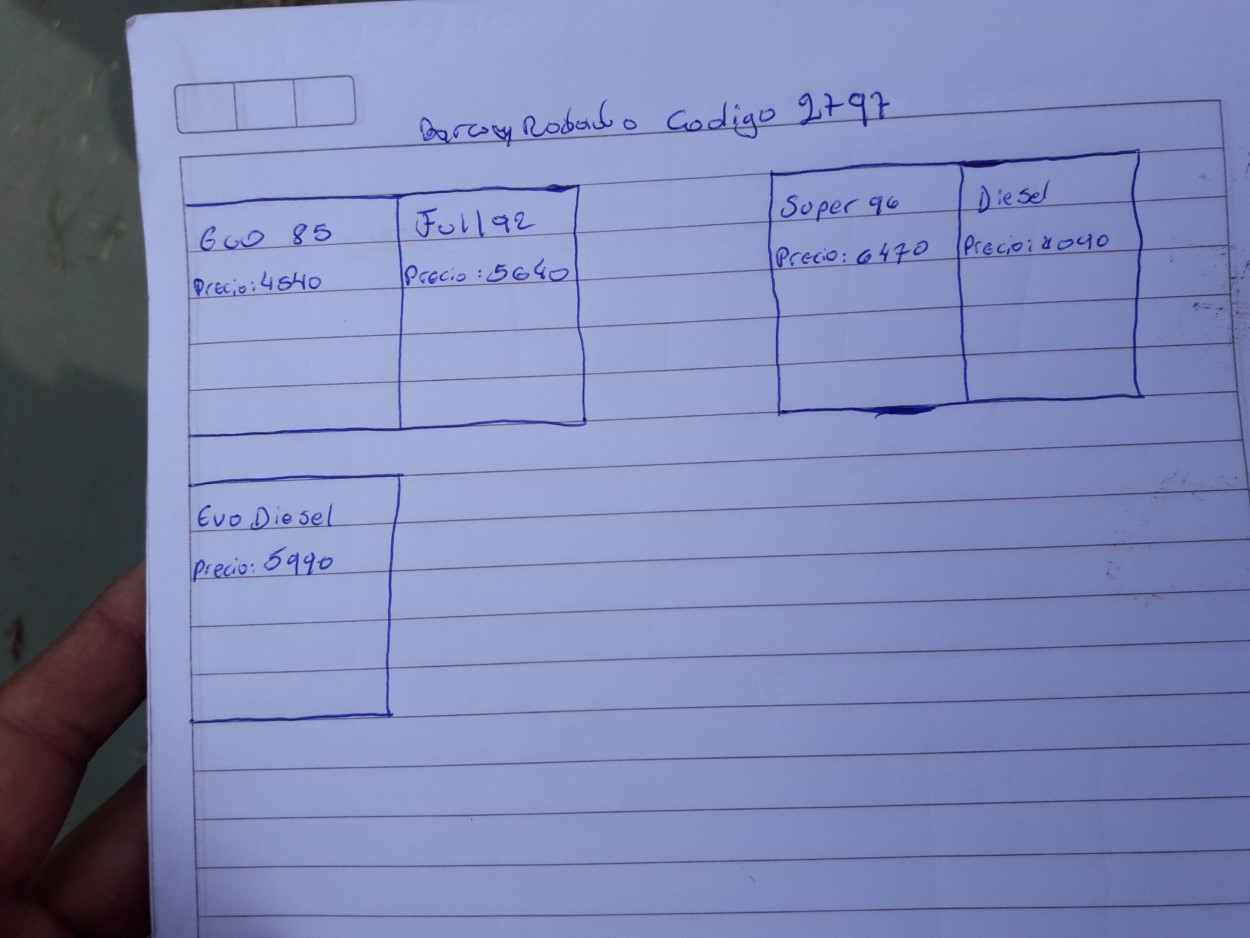 Robado Codigo 2797
Eco 85
Precio: 4540
Full 92
Precio: 5640
Super 96
Precio: 6470
Diesel
Precio:
Evo Diesel
Precio: 5990